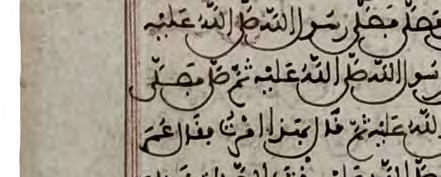 فصلى فصلى رسول الله صلى الله عليه
رسول الله صلى الله عليه ثم صلى فصلى
الله عليه ثم قال بهذا امرت فقال عمر